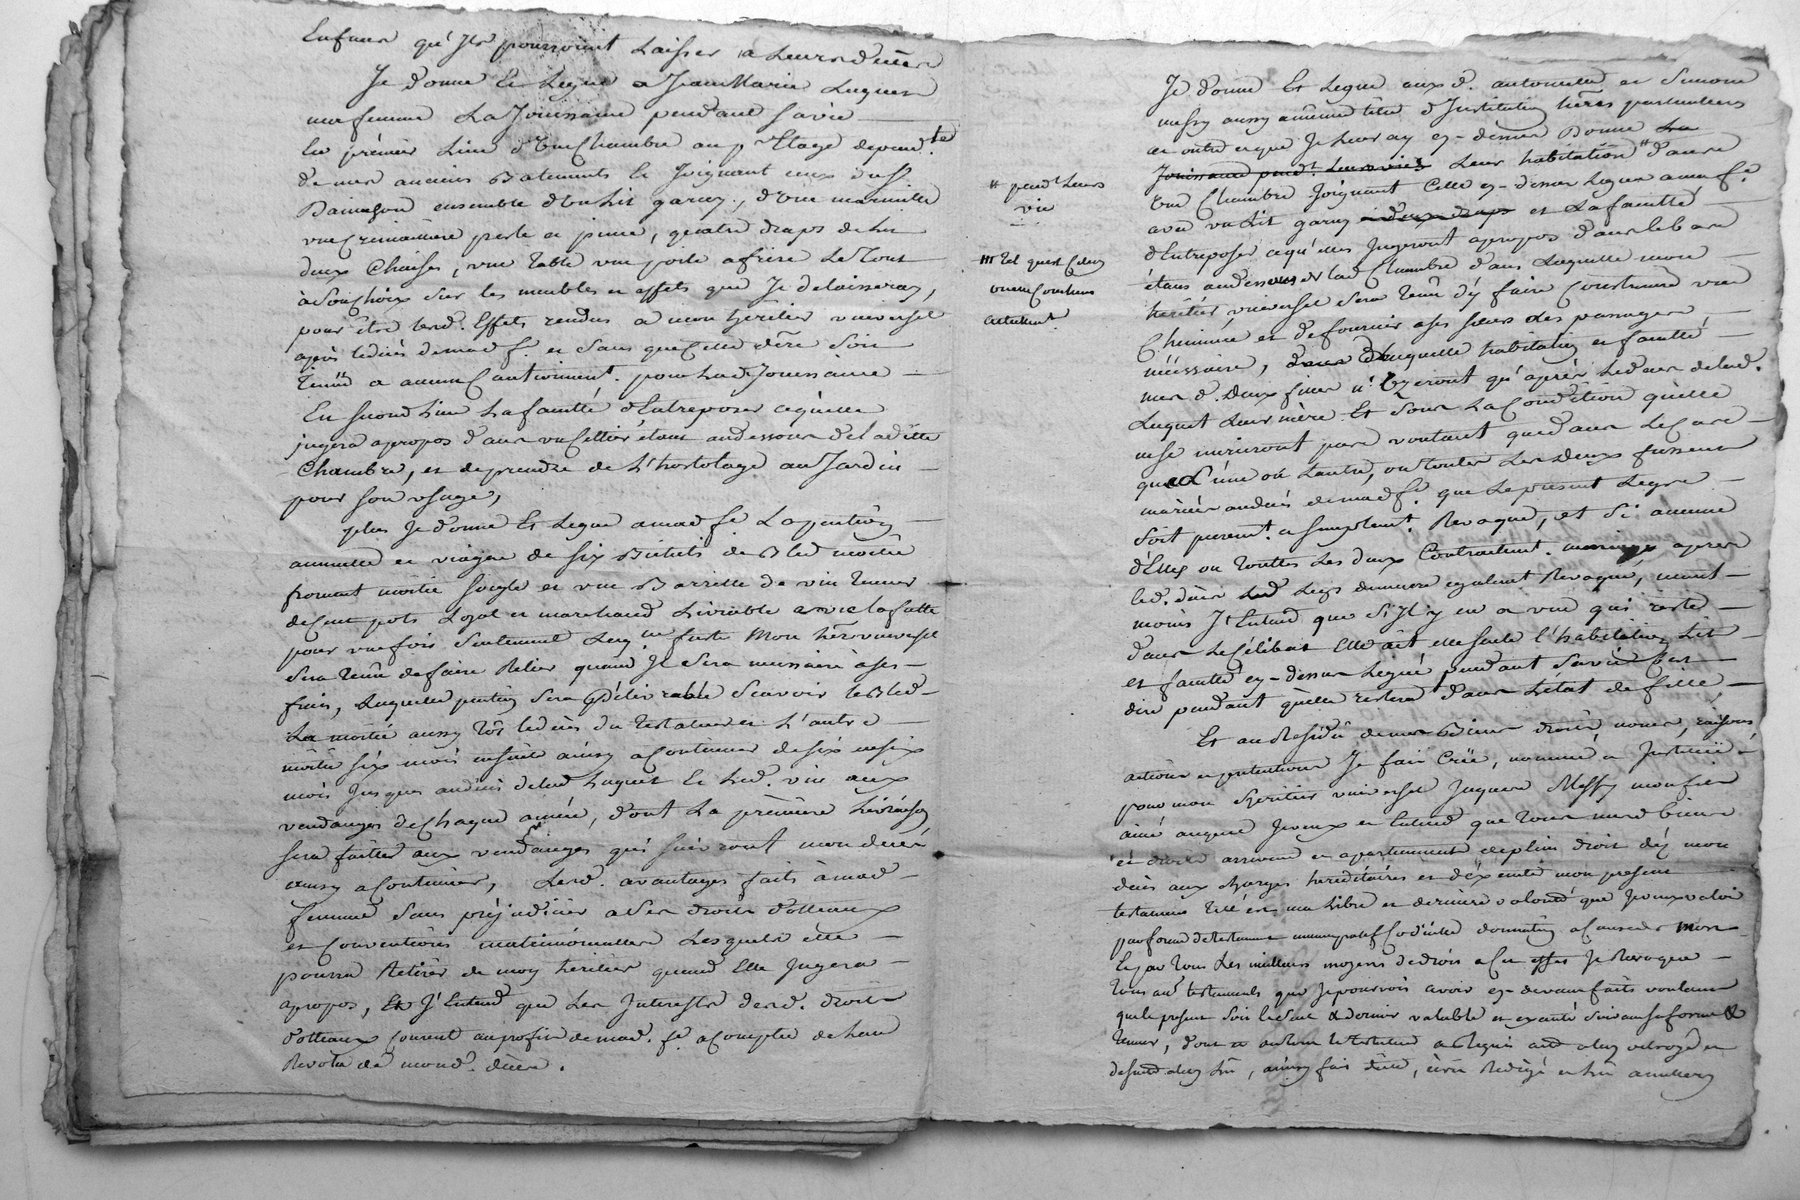 Enfans qu'Ils pourroient Laisser a Leurs décès
Je donne Et Legue a Jeanmarie Luquet
ma femme La Jouissance pendant sa vie
En premier Lieu d'Une Chambre au pr Etage depend.te
de mes anciens Batiments Et Joignant ceux du Sr
ensemble d'Un Lit garny, d'Une marmitte
une Cremaillere perle et pince, quatre draps de Lit
deux Chaises, une Table une poile a frire Le Tout
à Son Choix Sur les meubles et effets que Je delaisseray,
pour être lesd. Effets rendus a mon héritier universel
après le décès de mad. fe. et Sans que Celle cÿ Soit
Tenüe a aucun Cautionnemt. pour Lad. Jouissance
En Second Lieu La faculté d'Entreposer ce qu'elle
jugera apropos dans un Cellier étant audessous de Laditte
Chambre, et de prendre de L'hortolage au Jardin
pour Son Usage,
plus Je donne Et Legue a mad. fe. La pention
annuelle et viagere de Six Bichets de Bled moitié
froment moitié Seigle et une Barrille de vin Tenant
de Cent pots Loyal et marchand Livrable avec la futte
pour une fois Seulement Laquelle futte Mon her. universel
Sera tenû de faire Relier quand Il Sera necessaire à Ses
frais, Laquelle pention Sera délivrable Scavoir Le Bled
La moitié aussy tôt le décès du Testateur et L'autre
moitié six mois ensuite ainsy a Continuer de six en six
mois Jusques au décès de lad. Luquet Et Led. vin aux
vendanges de Chaque année, dont La première Livraison
Sera faitte aux vendanges qui Suivront mon décès
ainsy a Continuer, Lesd. avantages faits à mad.
femme Sans préjudicier a Ses droits dotteaux
et Conventions matrimonialles Lesquels elle
pourra Retirer de mon héritier quand Elle Jugera
apropos, Et J'Entend que Les Interests desd. droits
dotteaux Courent au profit de mad. fe. a Compter de
de mond. décès.
# pendt Leurs
vie
### Tel quest Celuy
actuelmt.
Je donne Et Legue aux d. antoinette et Simone
messy aussy a même titre d'Institution héres particulieres
et outre ce que Je Leur ay cy-dessus Donné La
Jouissance pendt. Leurs vies Leur habitation # dans
Une Chambre Joignant Celle cy-dessus Leguée a ma fe.
avec un Lit garny deux draps et La faculté
d'Entreposer ce qu'elles Jugeront apropos dans le bas
étant audessous de lad. Chambre dans Laquelle mon
héritier universel Sera Tenû d'y faire Construire une
Cheminée et de fournir a Ses Soeurs des passages
nécessaires, de Laquelle habitation et faculté
mes d. deux filles n'Useront qu'après Le décès de lad.
Luquet Leur mère Et Sous La Condition qu'elle
ne se marieront pas voulant que dans Le Cas
que L'une ou Lautre, ou toutes Les deux fussent
mariées au décès de mad. fe. que Le present Legs
Soit purement. et Simplement. Revoqué, et Si aucune
d'Elles ou Touttes Les deux Contractent. mariage après
led. décès Led. Legs demeure egalement Revoqué, neant-
moins J'Entend que S'Il y en a une qui reste
dans Le Célibat Elle ait, elle seule L'habitation, Lit
et faculté cy-dessus Legué pendant Sa vie C'est
dire pendant qu'elle restera dans L'état de fille
Et au Residû de mes Biens droits, noms, raisons,
actions et pretentions Je fais Crée, nomme et Institue
pour mon héritier universel Jaques Messy mon fils
ainé auquel Je veux et Entend que Tous mesd. biens
et droits arrivent et apartiennent de plein droit dès mon
décès aux charges hereditaires et d'éxécuter mon present
testament Telle est ma Libre et derniere volonté que Je veux valoir
par forme de testament nuncupatif Codicille donnation a Cause de mort
Et par Tous Les meilleurs moyens de droit a Cet effet Je Revoque
Tous autres testaments que Je pourrois avoir cy-devant faits voulant
que le present Soit le Seul & dernier valable et executé Suivant sa forme &
Teneur, dont
ainsy fait dicté, écrit Redigé et Lu